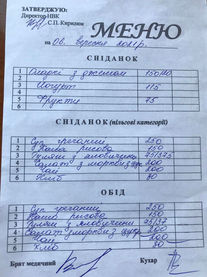 ЗАТВЕРДЖУЮ:
Директор НВК
С.П. Кирилюк
МЕНЮ
на 06. вересня 2021р.
СНІДАНОК
1 Оладки з джемом 150/10
2 Йогурт 115
3 Фрукти 75
4
5
6
СНІДАНОК (пільгові категорії)
1 Суп гречаний 250
2 Каша рисова 150
3 Гуляш з яловичини
4 Салат з моркви 100
5 Чай 200
6 Хліб 80
ОБІД
1 Суп гречаний 250
2 Каша рисова 150
3 Гуляш з яловичини
4 Салат з моркви
5 Чай 200
6 Хліб 80
Брат медичний
Кухар